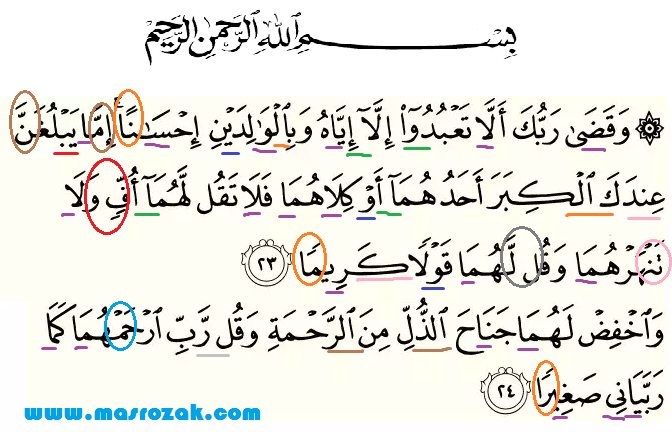 بِسْمِ ٱللَّهِ ٱلرَّحْمَٰنِ ٱلرَّحِيمِ
۞ وَقَضَىٰ رَبُّكَ أَلَّا تَعْبُدُوٓا۟ إِلَّآ إِيَّاهُ وَبِٱلْوَٰلِدَيْنِ إِحْسَٰنًا ۚ إِمَّا يَبْلُغَنَّ
عِندَكَ ٱلْكِبَرَ أَحَدُهُمَآ أَوْ كِلَاهُمَا فَلَا تَقُل لَّهُمَآ أُفٍّ وَلَا
تَنْهَرْهُمَا وَقُل لَّهُمَا قَوْلًا كَرِيمًا ٢٣
وَٱخْفِضْ لَهُمَا جَنَاحَ ٱلذُّلِّ مِنَ ٱلرَّحْمَةِ وَقُل رَّبِّ ٱرْحَمْهُمَا كَمَا
رَبَّيَانِى صَغِيرًا ٢٤
www.masrozak.com